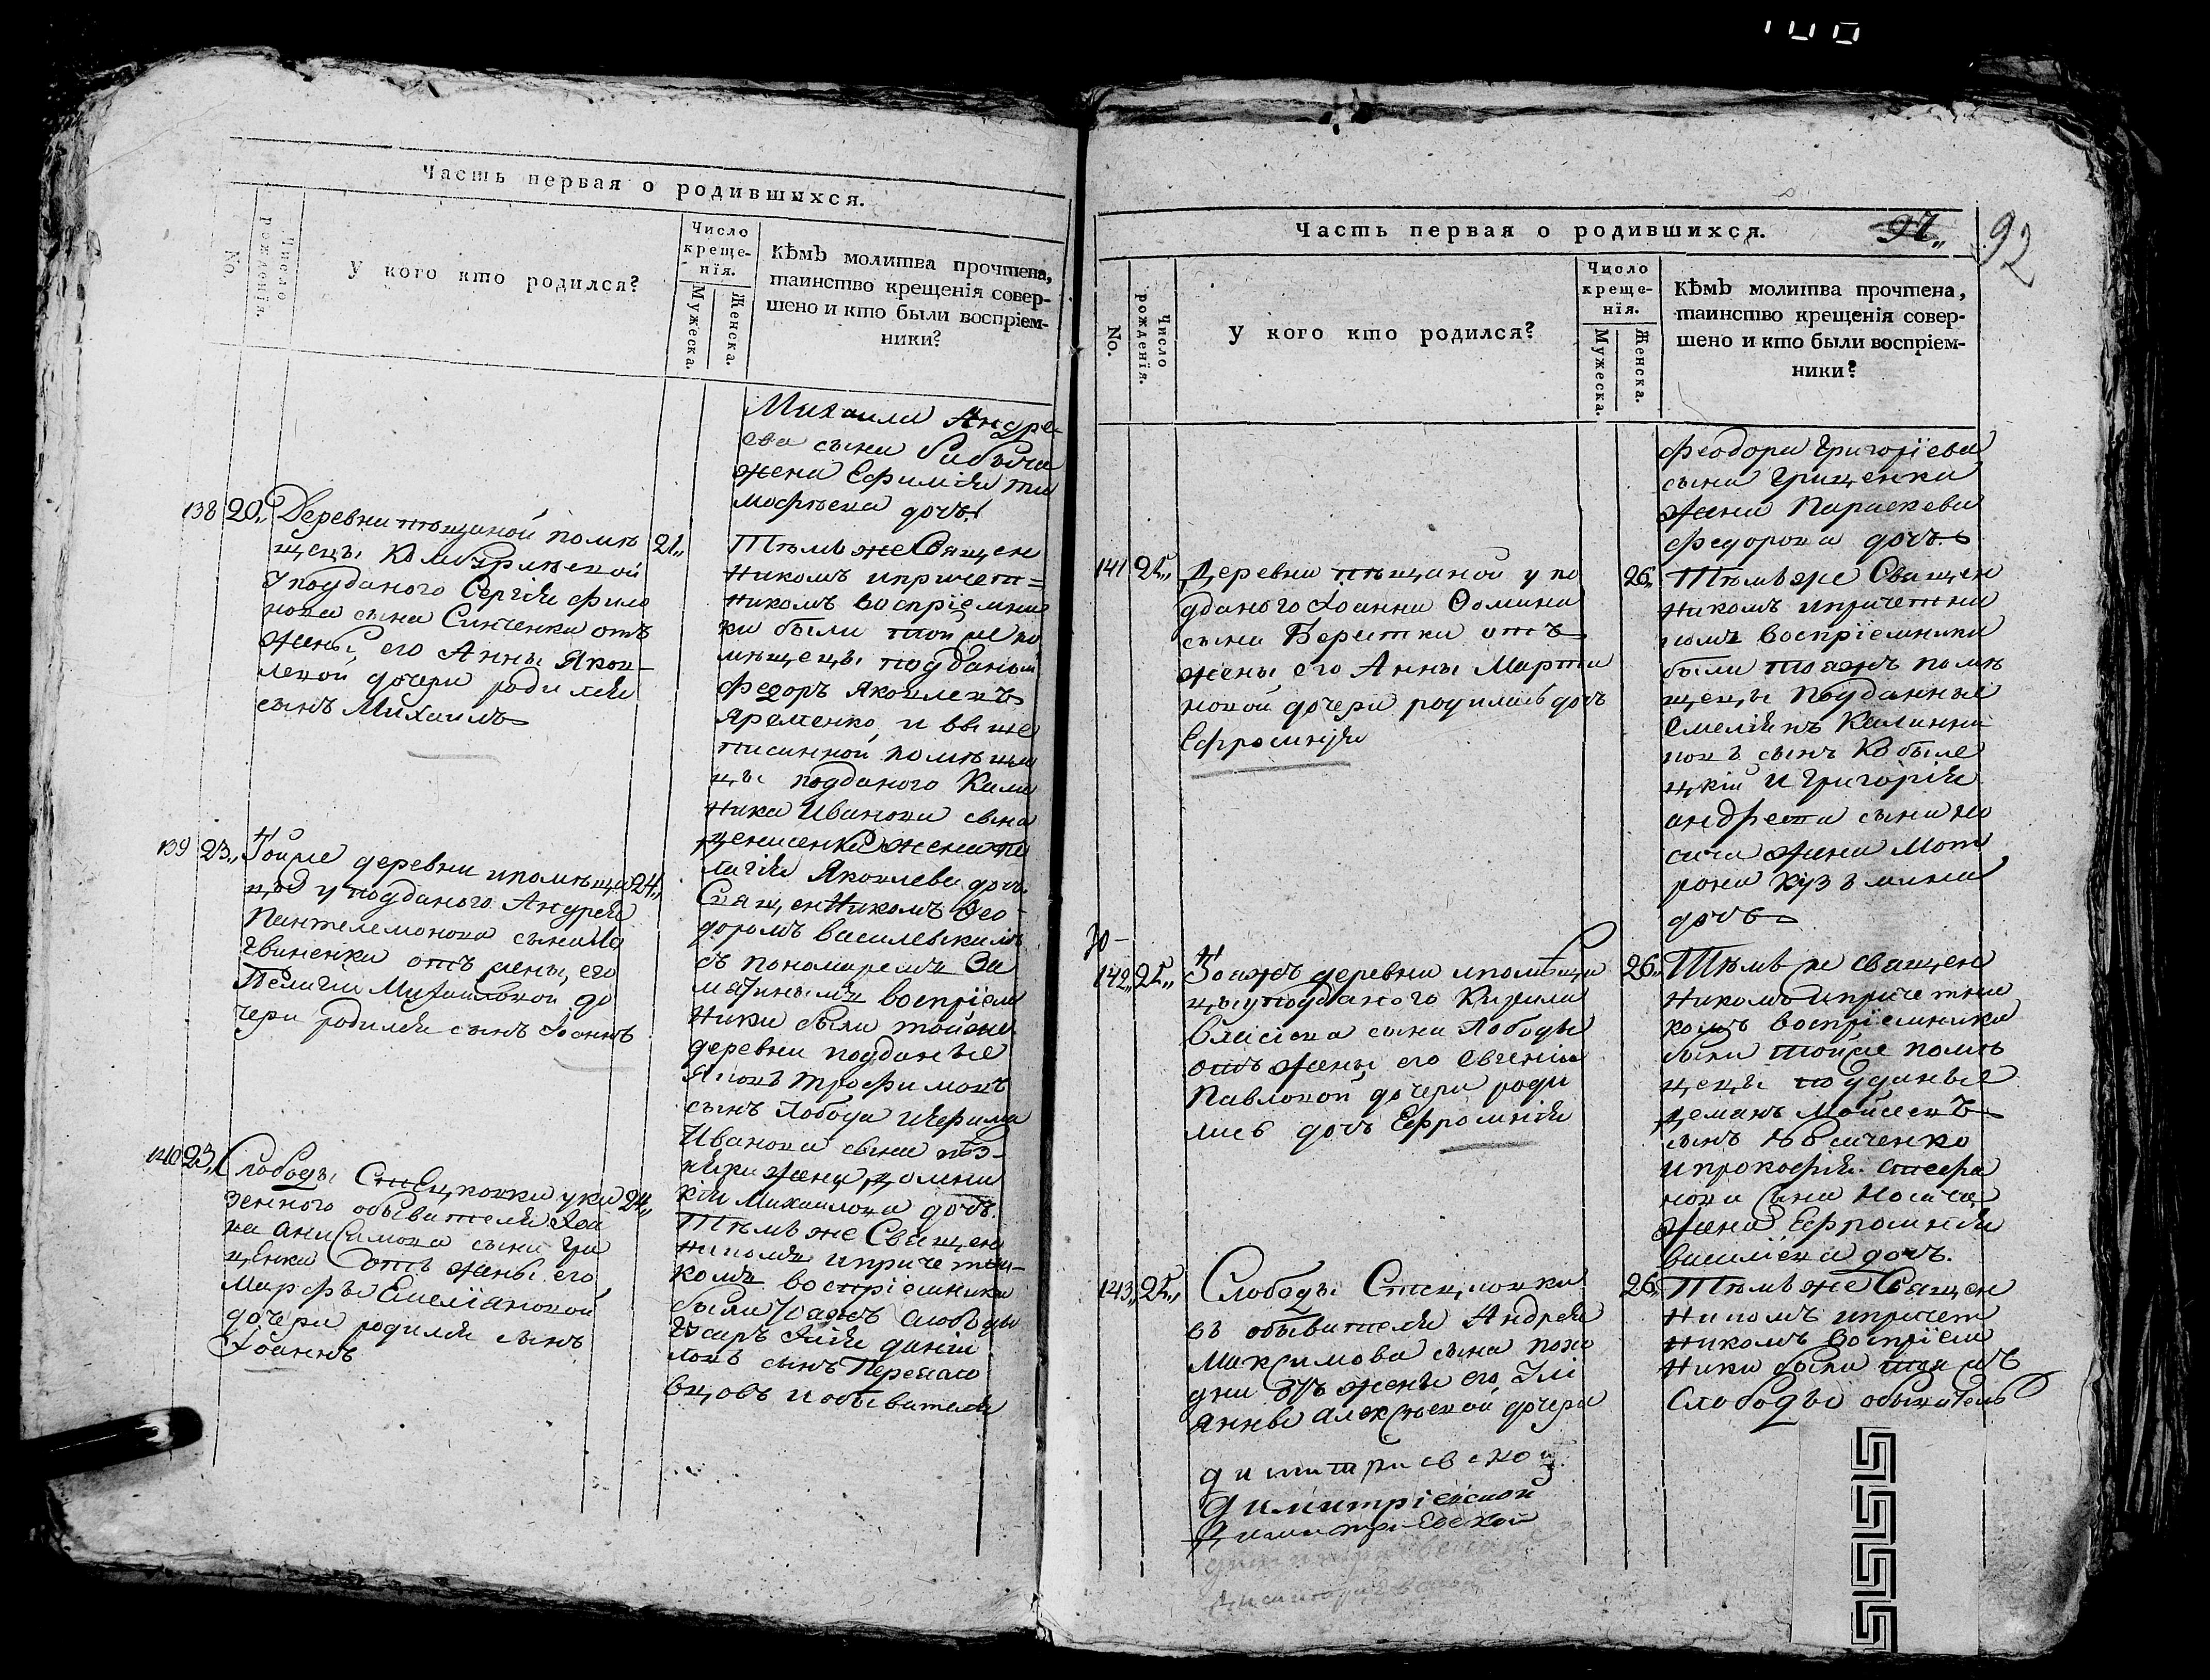 Часть первая о родившыхся.
No.
Число рожденїя.
У кого кто родился?
Число
креще-
нїя.
Мужеска.
Женска.
Кѣмъ молитва прочтена,
таинство крещенїя совер-
шено и кто были воспрїем-
ники?
Михаила Андре
ева сына
жена Ефимїя ти
мофѣева дочь
138 20,, Деревни пѣщаной помѣ
щецы
у подданого Сергїя Фило
нова сына Синченка отъ
жены его Анны Яков-
левой дочери родился
сынъ Михаилъ
21,,
Тѣмъ же Священ
никомъ ипричет=
никомъ воспрїемни
ки были той же по
мѣщецы подданый
Федоръ Яковлевъ
Яременко, и выше
писанной помѣщи
цы подданого Кали
ника Иванова сына
денисенка жена пе
лагїя Яковлева дочь.
139 23,, Тойже деревни ипомѣщи
цы у подданого Андрея
Пантелемонова сына Ло
гвиненка отъ жены его
Пелагїи Михайловой до
чери родился сынъ Іоаннъ
24,,
Священникомъ Фео
доромъ Василевскимъ
съ пономаремъ За
мятинымъ воспрїем
ники были тойже
деревни подданые
Яковъ Трофимовъ
сынъ Лобода иЕфима
Иванова сына
жена домни
кїя Михайлова дочь.
140 23,, Слободы Спеваковки у ка
зенного обывателя Іоа
на Анисимова сына Гри
ценка отъ жены его
Марфы Емелїановой
дочери родился сынъ
Іоаннъ
24,,
Тѣмъ же Священ
никомъ ипричетни-
комъ воспрїемники
были тоажъ слободы
Іосифъ Данїи
ловъ сынъ
и обывателя
97,, 92
Часть первая о родившихся.
No.
Число рожденїя.
У кого кто родился?
Число
креще-
нїя.
Мужеска.
Женска.
Кѣмъ молитва прочтена,
таинство крещенїя совер-
шено и кто были воспрїем-
ники?
Феодора Григорїева
сына Гриценка
жена Параскева
Федорова дочь
141 25,, Деревни пѣщаной у по
дданого Іоанна Ѳомина
сына Берестка отъ
жены его Анны Марти
новой дочери родилась дочь
Ефросинїя
26,,
Тѣмъ же Священ
никомъ ипричетни
комъ воспрїемники
были тоажъ помѣ
щецы подданные
Емелїянъ Калинни
ковъ сынъ Кобыле
цкїй и Григорїя
андреева сына но
сача жена Мот
рона кузьмина
дочь
30-
142,, 25,, Тоажъ деревни ипомѣщи
цы уподданого Кирила
Власїева сына Лободы
отъ жены его Евгенїи
Павловой дочери роди
лась дочь Ефросинїя
26,,
Тѣмъ же священ
никомъ ипричетни
комъ воспрїемники
были тойже помѣ
щецы подданые
Деманъ Мойсеевъ
сынъ
ипрокофїя стефа
нова сына Носача
жена Ефросинїя
василїева дочь.
143,, 25,, Слободы Спеваковки
въ обывателя Андрея
Максимова сына
отъ жены его Улї
янны Алексѣевой дочери
26,,
Тѣмъ же Священ
никомъ ипричет
никомъ воспрїем
ники были тоя жъ
Слободы обыватель
димитриевской
Димитрїевской
Димитрїевской